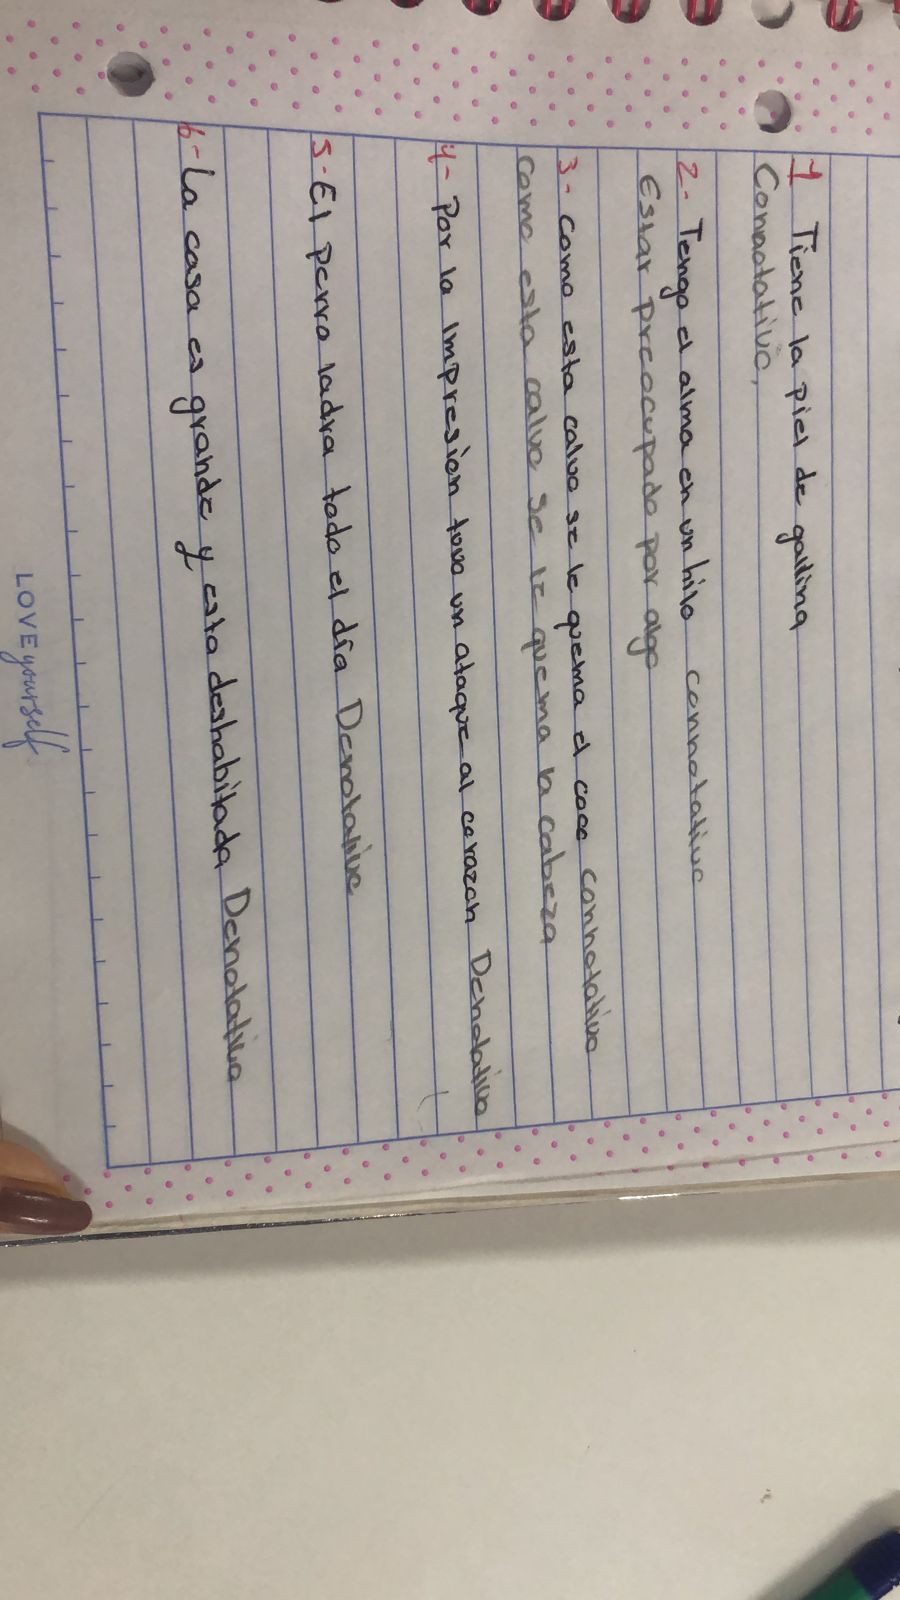 1 Tiene la piel de gallina
Connotativo,
2- Tengo el alma en un hilo connotativo
Estar preocupado por algo
3- como esta calvo se le quema el coco connotativo
como esta calvo se le quema la cabeza
4- Por la impresion tuvo un ataque al corazon Denotativo
5- El perro ladra todo el día Denotativo
6- La casa es grande y esta deshabitada Denotativo
LOVE yourself